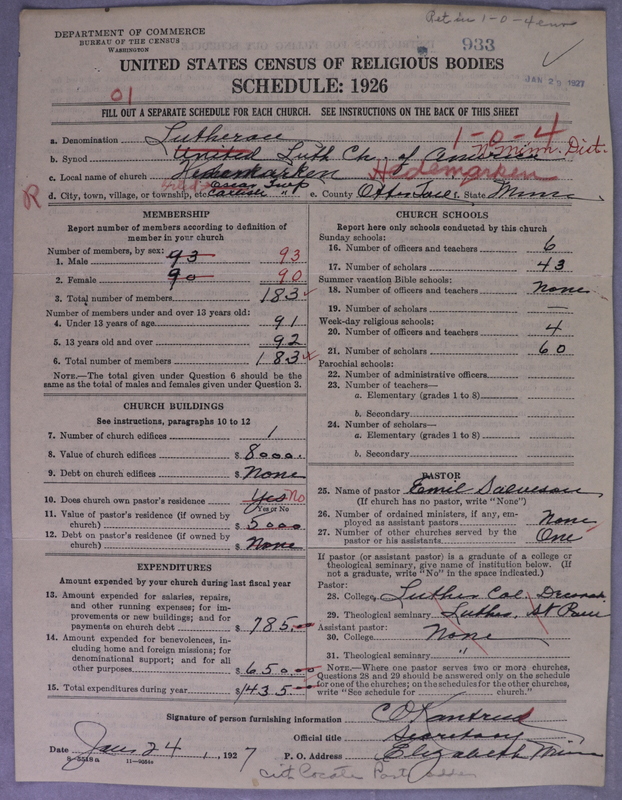 Ret in 1-0-4
DEPARTMENT OF COMMERCE
BUREAU OF THE CENSUS
WASHINGTON
933
UNITED STATES CENSUS OF RELIGIOUS BODIES
JAN 29 1927
SCHEDULE: 1926
01
FILL OUT A SEPARATE SCHEDULE FOR EACH CHURCH. SEE INSTRUCTIONS ON THE BACK OF THIS SHEET
a. Denomination Lutheran
1-0-4
b. Synod United Luth Ch. of America N. Minn. Dist.
c. Local name of church Hedemarken Hedemarken
R
d. City, town, village, or township, etc. Oscar Twp e. County Otter Tail f. State Minn
MEMBERSHIP
Report number of members according to definition of member in your church
Number of members, by sex:
1. Male 93 93
2. Female 90 90
3. Total number of members 183
Number of members under and over 13 years old:
4. Under 13 years of age 91
5. 13 years old and over 92
6. Total number of members 183
NOTE.—The total given under Question 6 should be the same as the total of males and females given under Question 3.
CHURCH BUILDINGS
See instructions, paragraphs 10 to 12
7. Number of church edifices 1
8. Value of church edifices $ 8000.
9. Debt on church edifices $ None
10. Does church own pastor's residence Yes No
Yes or No
11. Value of pastor's residence (if owned by church) $ 5000
12. Debt on pastor's residence (if owned by church) $ None
EXPENDITURES
Amount expended by your church during last fiscal year
13. Amount expended for salaries, repairs, and other running expenses; for improvements or new buildings; and for payments on church debt $ 785.
14. Amount expended for benevolences, including home and foreign missions; for denominational support; and for all other purposes $ 650.
15. Total expenditures during year $ 1435
CHURCH SCHOOLS
Report here only schools conducted by this church
Sunday schools:
16. Number of officers and teachers 6
17. Number of scholars 43
Summer vacation Bible schools:
18. Number of officers and teachers None
19. Number of scholars —
Week-day religious schools:
20. Number of officers and teachers 4
21. Number of scholars 60
Parochial schools:
22. Number of administrative officers
23. Number of teachers—
a. Elementary (grades 1 to 8)
b. Secondary
24. Number of scholars—
a. Elementary (grades 1 to 8)
b. Secondary
PASTOR
25. Name of pastor Emil Salveson
(If church has no pastor, write "None")
26. Number of ordained ministers, if any, employed as assistant pastors None
27. Number of other churches served by the pastor or his assistants One
If pastor (or assistant pastor) is a graduate of a college or theological seminary, give name of institution below. (If not a graduate, write "No" in the space indicated.)
Pastor:
28. College Luther Col. Decorah
29. Theological seminary Luther, St Paul
Assistant pastor:
30. College None
31. Theological seminary "
NOTE.—Where one pastor serves two or more churches, Questions 28 and 29 should be answered only on the schedule for one of the churches; on the schedules for the other churches, write "See schedule for church."
Signature of person furnishing information C O Kantrud
Official title Secretary
Date Jan 24, 1927 P. O. Address Elizabeth Minn
8-5518a 11-9364a